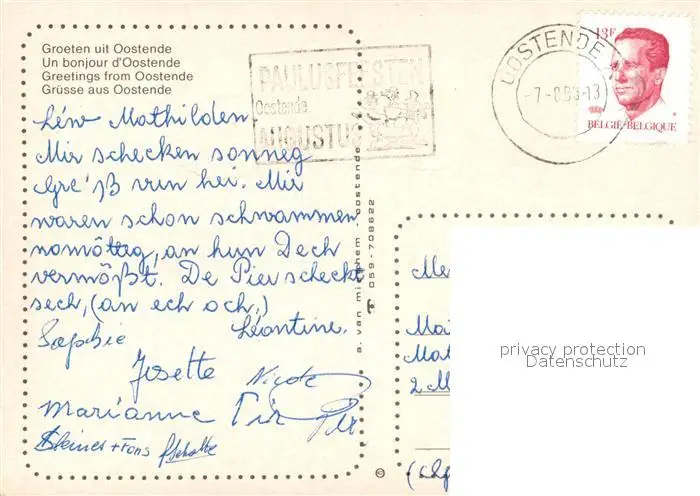 Groeten uit Oostende
Un bonjour d'Oostende
Greetings from Oostende
Grüsse aus Oostende
PAULUSFEESTEN
Oostende
AUGUSTUS
OOSTENDE 1
-7-8.86-13
13F
BELGIË-BELGIQUE
Léiw Mathilden
Mir schecken sonneg
Gre'ß vun hei. Mir
waren schon schwammen
nomötteg, an hun Dech
vermößt. De Pier scheckt
sech, (an ech och,)
Léontine.
Sophie
Josette Nicole
Marianne Pir
+ Fons
a. van mieghem - oostende
059-708622
©
Me
Mai
Mat
2 M
privacy protection
Datenschutz